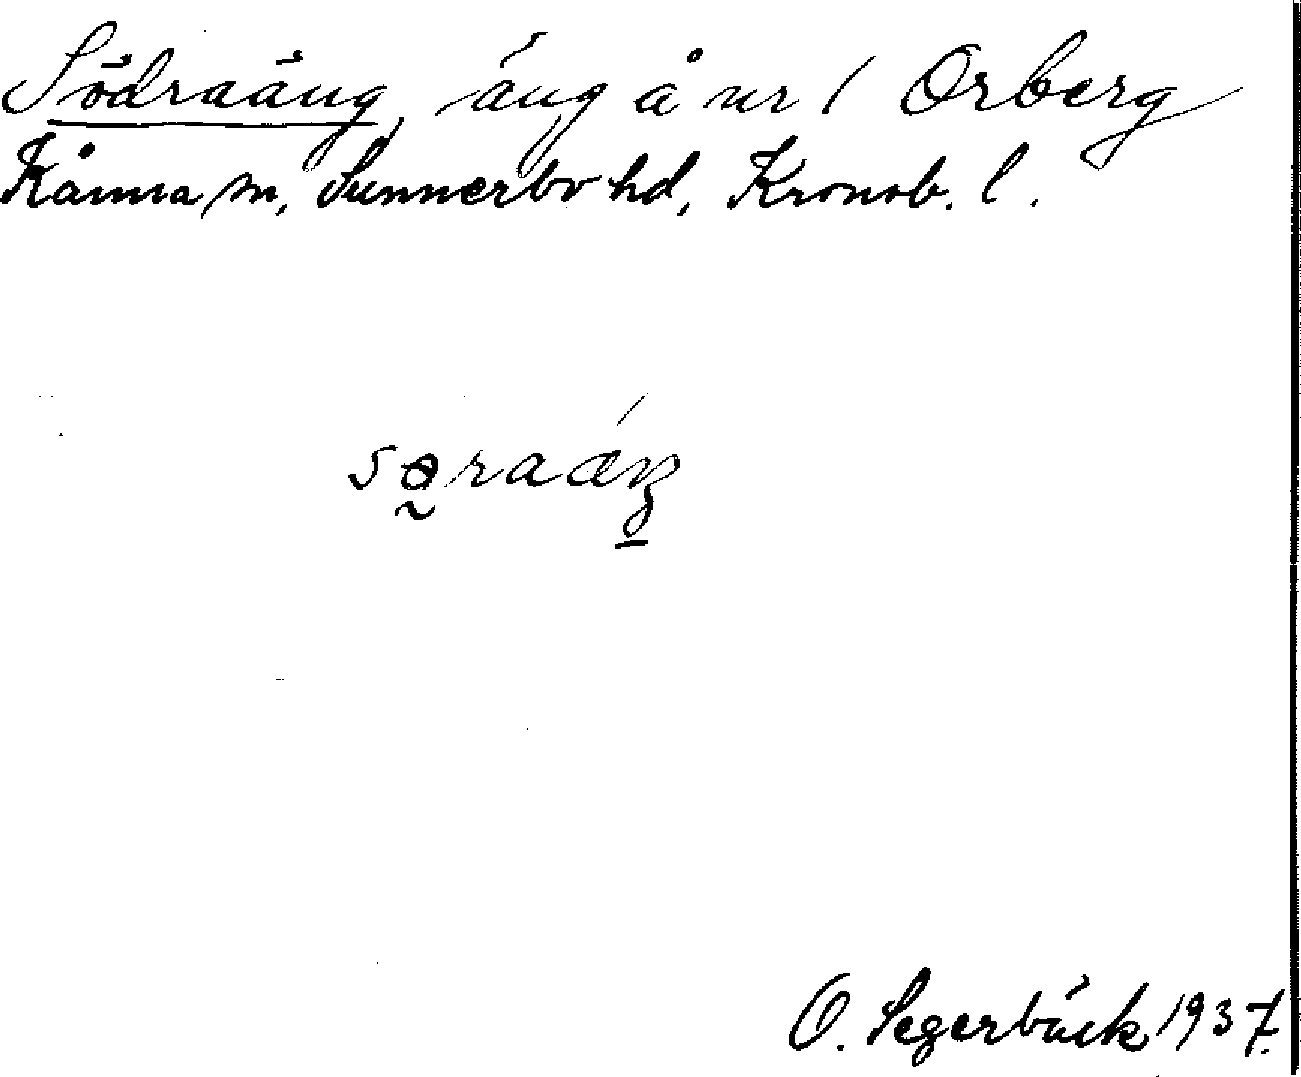 Södraäng, äng å nr 1 Orberg
Kånna sn, Sunnerbo hd, Kronob. l.
sɵraǽŋ
O. Segerbäck 1937.